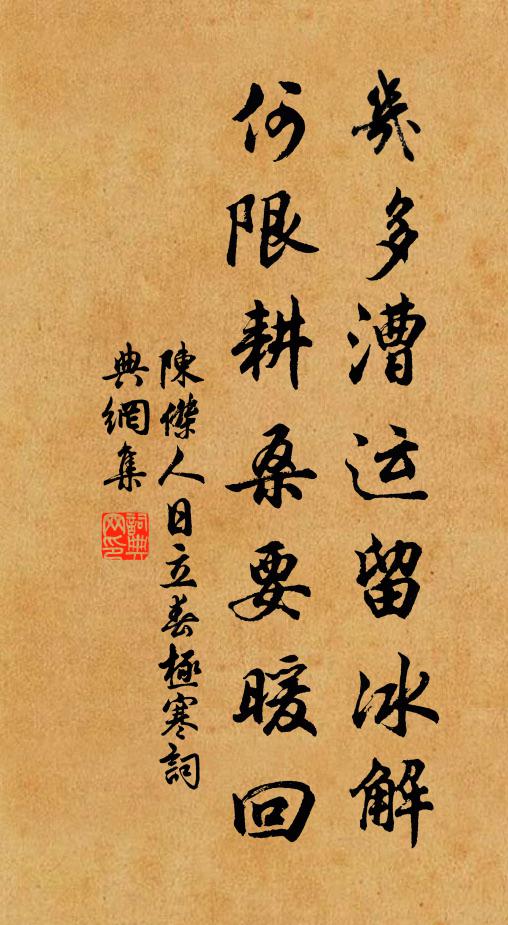 幾多漕运留冰解
何限耕桑要暖回
陳傑人日立春極寒詞
典網集
詞典網印